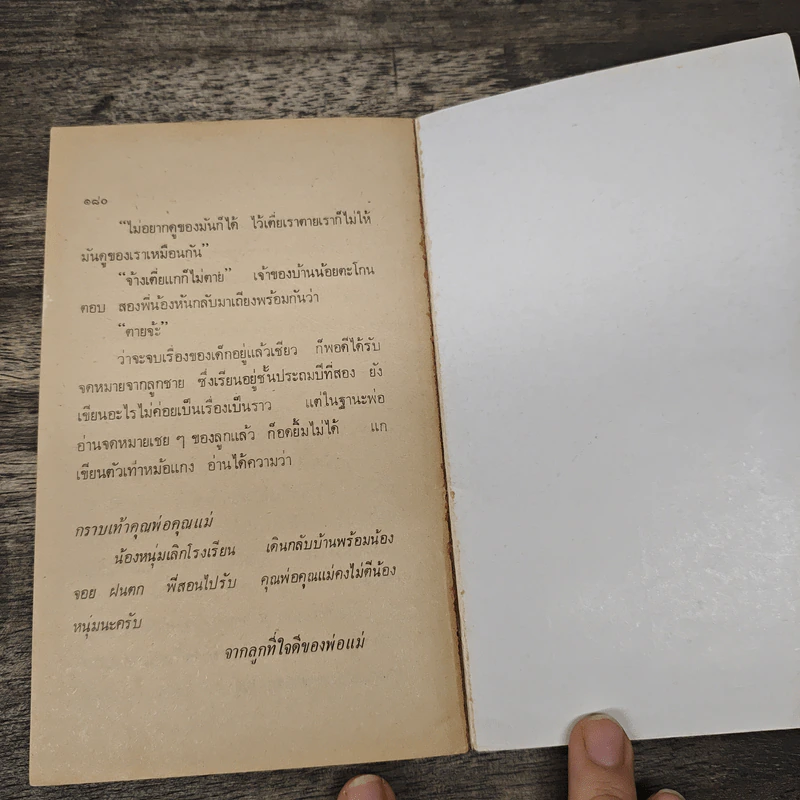 ๑๘๐
“ไม่อยากดูของมันก็ได้ ไว้เตี่ยเราตายเราก็ไม่ให้
มันดูของเราเหมือนกัน”
“จ้างเตี่ยแกก็ไม่ตาย” เจ้าของบ้านน้อยตะโกน
ตอบ สองพี่น้องหันกลับมาเถียงพร้อมกันว่า
“ตายจ้ะ”
ว่าจะจบเรื่องของเด็กอยู่แล้วเชียว ก็พอดีได้รับ
จดหมายจากลูกชาย ซึ่งเรียนอยู่ชั้นประถมปีที่สอง ยัง
เขียนอะไรไม่ค่อยเป็นเรื่องเป็นราว แต่ในฐานะพ่อ
อ่านจดหมายเชย ๆ ของลูกแล้ว ก็อดยิ้มไม่ได้ แก
เขียนตัวเท่าหม้อแกง อ่านได้ความว่า
กราบเท้าคุณพ่อคุณแม่
น้องหนุ่มเลิกโรงเรียน เดินกลับบ้านพร้อมน้อง
จอย ฝนตก พี่สอนไปรับ คุณพ่อคุณแม่คงไม่ตีน้อง
หนุ่มนะครับ
จากลูกที่ใจดีของพ่อแม่